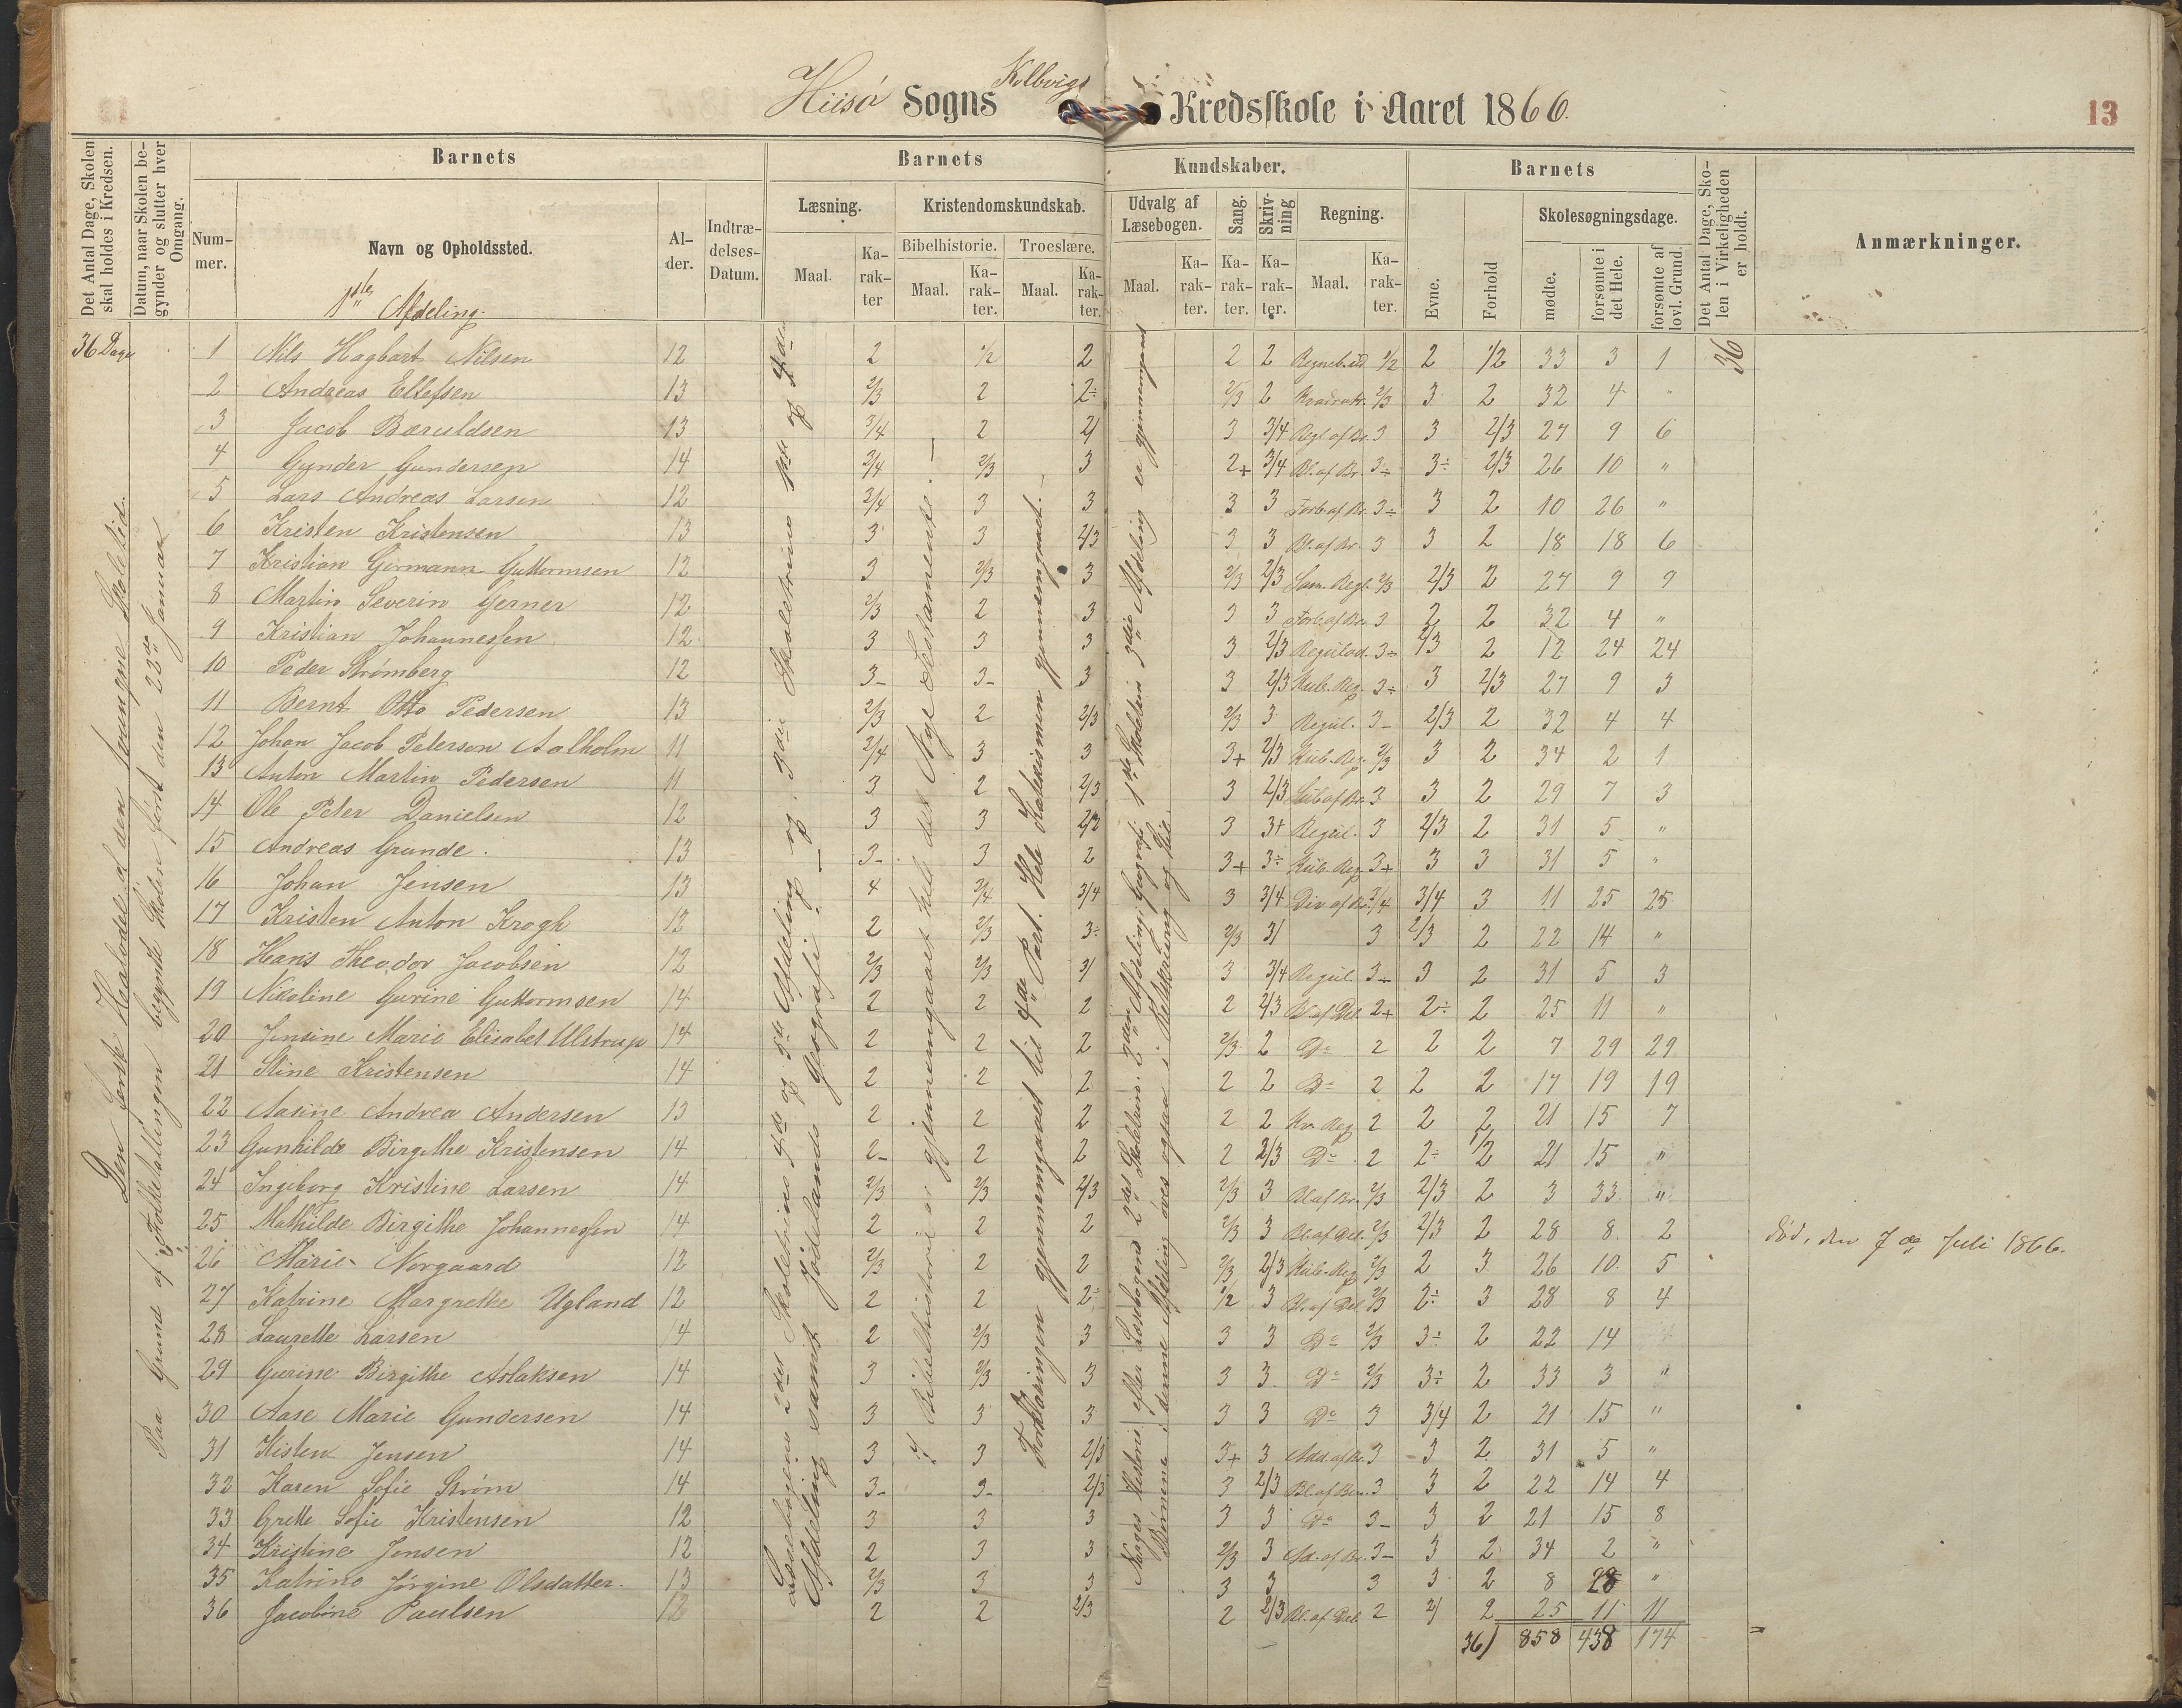 Hiisø Sogns Kolbvigs Kredsskole i Aaret 1866.
13
Det Antal Dage, Skolen skal holdes i Kredsen.
Datum, naar Skolen begynder og slutter hver Omgang.
Barnets
Barnets
Kundskaber.
Barnets
Det Antal Dage, Skolen i Virkeligheden er holdt.
Anmærkninger.
Nummer.
Navn og Opholdssted.
Alder.
Indtrædelses-Datum.
Læsning.
Kristendomskundskab.
Udvalg af Læsebogen.
Sang.
Skrivning
Regning.
Evne.
Forhold
Skolesøgningsdage.
Bibelhistorie.
Troeslære.
Maal.
Karakter
Maal.
Karakter.
Maal.
Karakter.
Maal.
Karakter.
Karakter.
Karakter.
Maal.
Karakter.
mødte.
forsømte i det Hele.
forsømte af lovl. Grund.
1ste Afdeling.
36 Dage
36
Den første Halvdel af den tvungne Skoletid.
Paa Grund af Folketællingen begyndte Skolen først den 22de Januar
Læsebogens 2det Skoletrins 4de og 5te Afdeling og 3die Skoletrins 1ste og 2den
Afdeling samt Jødelands Geografi.
Bibelhistorie er gjennemgaaet hele det Nye Testamente.
Forklaringen gjennemgaaet til 4de Part. Hele Katekismen gjennemgaaet.
Norges Historie efter Læsebogens 2det Skoletrin 2den Afdeling; Geografi: 1ste Skoletrin 3die Afdeling er gjennemgaaet
Børnene i denne Afdeling øves ogsaa i Retskrivning og Stil.
1 Nils Hagbart Nilsen 12 2 1/2 2 2 2 1/2 2 1/2 33 3 1
2 Andreas Ellefsen 13 2/3 2 2÷ 2/3 2 Kvadratr. 2/3 3 2 32 4 "
3 Jacob Baruldsen 13 3/4 2 2/ 3 3/4 Regl af Br. 3 3 2/3 27 9 6
4 Gunder Gundersen 14 3/4 2/3 3 2+ 3/4 Bl. af Br. 3÷ 3÷ 2/3 26 10 "
5 Lars Andreas Larsen 12 3/4 3 3 3 3 Forb. af Br. 3÷ 3 2 10 26 "
6 Kristen Kristensen 13 3 3 2/3 3 3 Bl. af Br. 3 3 2 18 18 6
7 Kristian Germann Guttormsen 12 3 2/3 3 2/3 2/3 Sam. Regl. 2/3 2/3 2 27 9 9
8 Martin Severin Gerner 12 2/3 2 3 3 3 Forb. af Br. 3 2 2 32 4 "
9 Kristian Johannesen 12 3 3 3 3 2/3 3÷ 2/3 2 12 24 24
10 Peder Strømberg 12 3- 3- 3 3 2/3 Kub. Reg. 3÷ 3 2/3 27 9 3
11 Bernt Otto Pedersen 13 2/3 2 2/3 2/3 3 Regul. 3- 2/3 2 32 4 4
12 Johan Jacob Peterson Aalholm 11 3/4 3 3 3+ 2/3 Kub. Reg. 2/3 3 2 34 2 1
13 Anton Martin Pedersen 11 3 2 2/3 3 2/3 3 3 2 29 7 3
14 Ole Peter Danielsen 12 3 3 2/2 3 3+ Regul. 3 2/3 2 31 5 "
15 Andreas Grande. 13 3- 3 2 3+ 3÷ Kub. Reg. 3+ 3 3 31 5 "
16 Johan Jensen 13 4 3/4 3/4 3 3/4 Div. af Br. 3/4 3/4 3 11 25 25
17 Kristen Anton Krogh 12 2 2/3 3÷ 2/3 3/ 3 2/3 2 22 14 "
18 Hans Theodor Jacobsen 12 2/3 2/3 3/ 3 3/4 Regul. 3- 3 2 31 5 3
19 Nikoline Gurine Guttormsen 14 2 2 2 2 2/3 Bl. af Del. 2+ 2÷ 2 25 11 "
20 Jensine Marie Elisabet Ulstrup 14 2 2 2 2/3 2 Do 2 2 2 7 29 29
21 Stine Kristensen 14 2 2 2 2 2 Do 2 2 2 17 19 19
22 Aasine Andrea Andersen 13 2 2 2 2 2 Kv. Reg 2 2 2 21 15 7
23 Gunhilde Birgithe Kristensen 14 2- 2 2 2 2/3 Do 2 2÷ 1/2 21 15 "
24 Ingeborg Kristine Larsen 14 2/3 2/3 2/3 2/3 3 Bl. af Br. 2/3 2/3 2 3 33 "
25 Mathilde Birgithe Johannesen 14 2 2 2 2/3 3 Bl. af Del. 2/3 2/3 2 28 8 2 død, den 7de Juli 1866.
26 Marie Norgaard 12 2/3 2 2 2/3 2/3 Kub. Reg 2/3 2 3 26 10 5
27 Katrine Margrethe Ugland 12 2 2 2÷ 1/2 3 Bl. af Del 2/3 2÷ 3 28 8 4
28 Laurette Larsen 14 2 2/3 3 3 3 Do 2/3 3÷ 2 22 14
29 Gurine Birgithe Aslaksen 14 3 2/3 3 3 3 Do 2/3 3÷ 2 33 3 "
30 Aase Marie Gundersen 14 3 3 3 3 3 Do 3 3/4 2 21 15 "
31 Kisten Jensen 14 3 3 2/3 3+ 3 Add. af Br. 3 3 2 31 5 "
32 Karen Sofie Strøm 14 3- 3- 2/3 3 2/3 Bl. af Ben. 3 3 2 22 14 4
33 Grette Sofie Kristensen 12 3 3 3 3 3 Do 3- 3 2 21 15 8
34 Kristine Jensen 12 2 3 3 2/3 3 Ad. af Br. 3- 3 2 34 2 "
35 Katrine Jørgine Olsdatter. 13 2/3 3 3 3 3 3 3 2 8 28 "
36 Jacobine Paulsen 12 2 2 2/3 2 2/3 Bl. af Del. 2 2/ 2 25 11 11
36) 858 438 174